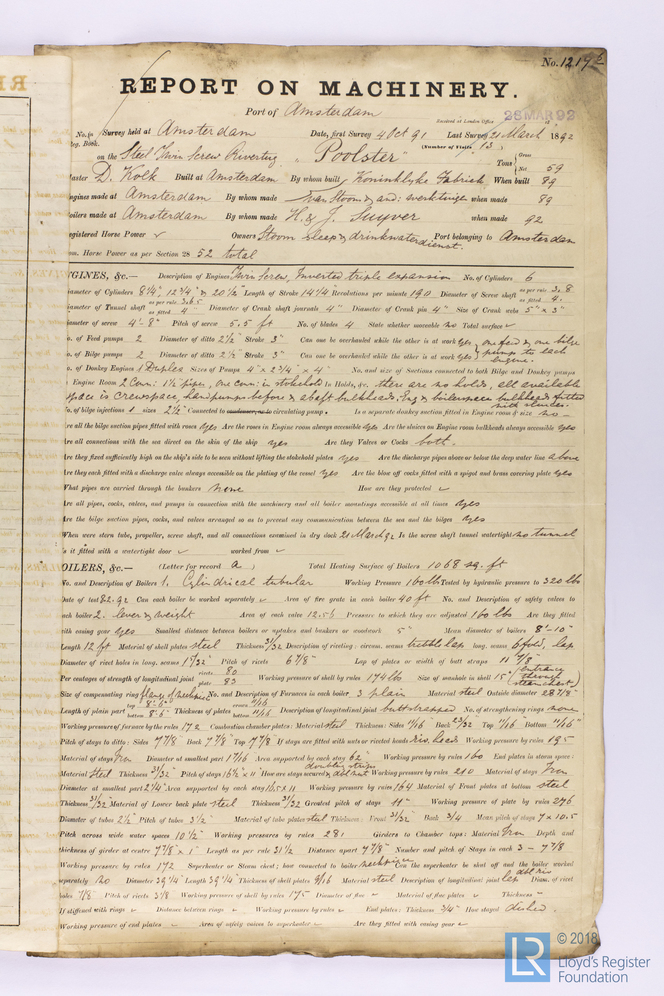 No. 12192
REPORT ON MACHINERY.
Port of Amsterdam
Received at London Office 28 MAR 92
No. in Survey held at Amsterdam Date, first Survey 4 Oct 91 Last Survey 21 March 1892
Reg. Book. (Number of Visits 13)
on the Steel Twin Screw "Poolster" Tons Gross
Net 59
Master D. Kolk Built at Amsterdam By whom built Koninklyke Fabriek When built 89
Engines made at Amsterdam By whom made van Stoom & and: werktuigen when made 89
Boilers made at Amsterdam By whom made H. & J. Suyver when made 92
Registered Horse Power ✓ Owners Stoom Sleep & drinkwaterdienst. Port belonging to Amsterdam
Nom. Horse Power as per Section 28 52 total
ENGINES, &c.— Description of Engines Twin Screw, Inverted triple expansion No. of Cylinders 6
Diameter of Cylinders 8 1/4", 12 3/4" & 20 1/2" Length of Stroke 14 1/4 Revolutions per minute 190 Diameter of Screw shaft as per rule 3.8 as fitted 4.
Diameter of Tunnel shaft as per rule 3.65 as fitted 4" Diameter of Crank shaft journals 4" Diameter of Crank pin 4" Size of Crank webs 5" x 3"
Diameter of screw 4'-8" Pitch of screw 5.5 ft No. of blades 4 State whether moveable no Total surface ✓
No. of Feed pumps 2 Diameter of ditto 2 1/2" Stroke 3" Can one be overhauled while the other is at work yes one feed & one bilge
No. of Bilge pumps 2 Diameter of ditto 2 1/2" Stroke 3" Can one be overhauled while the other is at work yes pumps to each engine.
No. of Donkey Engines 1 Duplex Sizes of Pumps 4" x 2 3/4" x 4" No. and size of Suctions connected to both Bilge and Donkey pumps
In Engine Room 2 Conn: 1 1/2 pipes, one conn: in stokehold In Holds, &c. there are no holds, all available
space is crewspace, handpumps before & abaft bulkheads. Eng & boilerspace bulkheads fitted with sluices.
No. of bilge injections 1 sizes 2 1/2" Connected to condenser, or to circulating pump. Is a separate donkey suction fitted in Engine room & size no
Are all the bilge suction pipes fitted with roses yes Are the roses in Engine room always accessible yes Are the sluices on Engine room bulkheads always accessible yes
Are all connections with the sea direct on the skin of the ship yes Are they Valves or Cocks both.
Are they fixed sufficiently high on the ship's side to be seen without lifting the stokehold plates yes Are the discharge pipes above or below the deep water line above
Are they each fitted with a discharge valve always accessible on the plating of the vessel yes Are the blow off cocks fitted with a spigot and brass covering plate yes
What pipes are carried through the bunkers none How are they protected ✓
Are all pipes, cocks, valves, and pumps in connection with the machinery and all boiler mountings accessible at all times yes
Are the bilge suction pipes, cocks, and valves arranged so as to prevent any communication between the sea and the bilges yes
When were stern tube, propeller, screw shaft, and all connections examined in dry dock 21 March 92 Is the screw shaft tunnel watertight no tunnel
Is it fitted with a watertight door ✓ worked from ✓
BOILERS, &c.— (Letter for record a) Total Heating Surface of Boilers 1068 sq. ft
No. and Description of Boilers 1. Cylindrical tubular Working Pressure 160 lb Tested by hydraulic pressure to 320 lbs
Date of test 8.2.92 Can each boiler be worked separately ✓ Area of fire grate in each boiler 40 ft No. and Description of safety valves to
each boiler 2. lever & weight Area of each valve 12.56 Pressure to which they are adjusted 160 lbs Are they fitted
with easing gear yes Smallest distance between boilers or uptakes and bunkers or woodwork 5" Mean diameter of boilers 8'-10"
Length 12 ft Material of shell plates steel Thickness 31/32 Description of riveting: circum. seams treble lap long. seams 6 fold, lap
Diameter of rivet holes in long. seams 1 7/32" Pitch of rivets 6 7/8" Lap of plates or width of butt straps 11 7/8"
Per centages of strength of longitudinal joint rivets 80 plate 83 Working pressure of shell by rules 174 lb Size of manhole in shell 15" (entrance through steamchest)
Size of compensating ring flange of neckpiece No. and Description of Furnaces in each boiler 3 plain Material steel Outside diameter 28 7/8"
Length of plain part top 8'6" bottom 8'6" Thickness of plates crown 11/16 bottom 11/16 Description of longitudinal joint buttstrapped No. of strengthening rings none
Working pressure of furnace by the rules 172 Combustion chamber plates: Material steel Thickness: Sides 11/16" Back 23/32" Top 11/16 Bottom 11/16"
Pitch of stays to ditto: Sides 7 7/8 Back 7 7/8" Top 7 7/8" If stays are fitted with nuts or riveted heads riv. heads Working pressure by rules 195
Material of stays Iron Diameter at smallest part 1 7/16 Area supported by each stay 62" Working pressure by rules 160 End plates in steam space:
Material Steel Thickness 31/32" Pitch of stays 16 1/2 x 11 How are stays secured doubling strips & dbl nuts Working pressure by rules 210 Material of stays Iron
Diameter at smallest part 2 1/4" Area supported by each stay 16.5 x 11 Working pressure by rules 164 Material of Front plates at bottom steel
Thickness 31/32 Material of Lower back plate steel Thickness 31/32 Greatest pitch of stays 11" Working pressure of plate by rules 276
Diameter of tubes 2 1/2" Pitch of tubes 3 1/2" Material of tube plates steel Thickness: Front 31/32 Back 3/4 Mean pitch of stays 7 x 10.5
Pitch across wide water spaces 10 1/2" Working pressures by rules 281 Girders to Chamber tops: Material Iron Depth and
thickness of girder at centre 7 7/8" x 1" Length as per rule 31 1/2 Distance apart 7 7/8" Number and pitch of Stays in each 3 - 7 7/8
Working pressure by rules 172 Superheater or Steam chest; how connected to boiler neckpiece Can the superheater be shut off and the boiler worked
separately no Diameter 39 1/4" Length 39 1/4" Thickness of shell plates 9/16 Material steel Description of longitudinal joint lap dbl riv Diam. of rivet
holes 7/8" Pitch of rivets 3 1/8 Working pressure of shell by rules 175 Diameter of flue ✓ Material of flue plates ✓ Thickness ✓
If stiffened with rings ✓ Distance between rings ✓ Working pressure by rules ✓ End plates: Thickness 3/4" How stayed dished.
Working pressure of end plates ✓ Area of safety valves to superheater ✓ Are they fitted with easing gear ✓
LR © 2018 Lloyd's Register Foundation